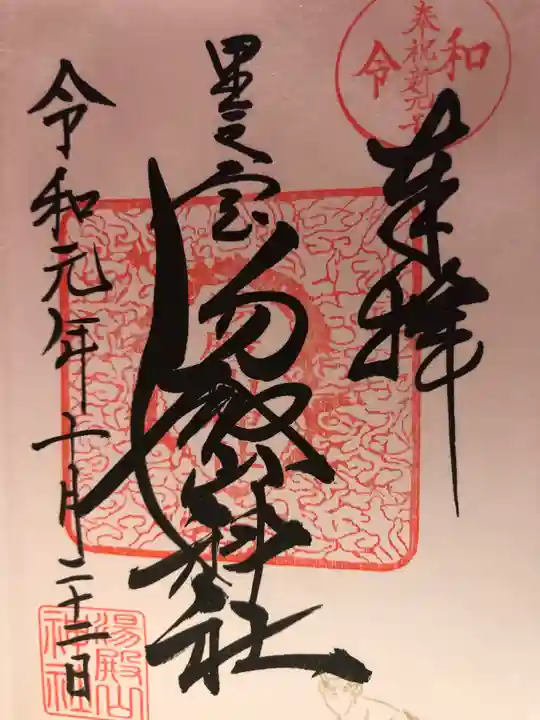 奉祝新元号
令和
奉拝
霊宝
湯殿山神社
令和元年十月二十二日
湯殿山
神社